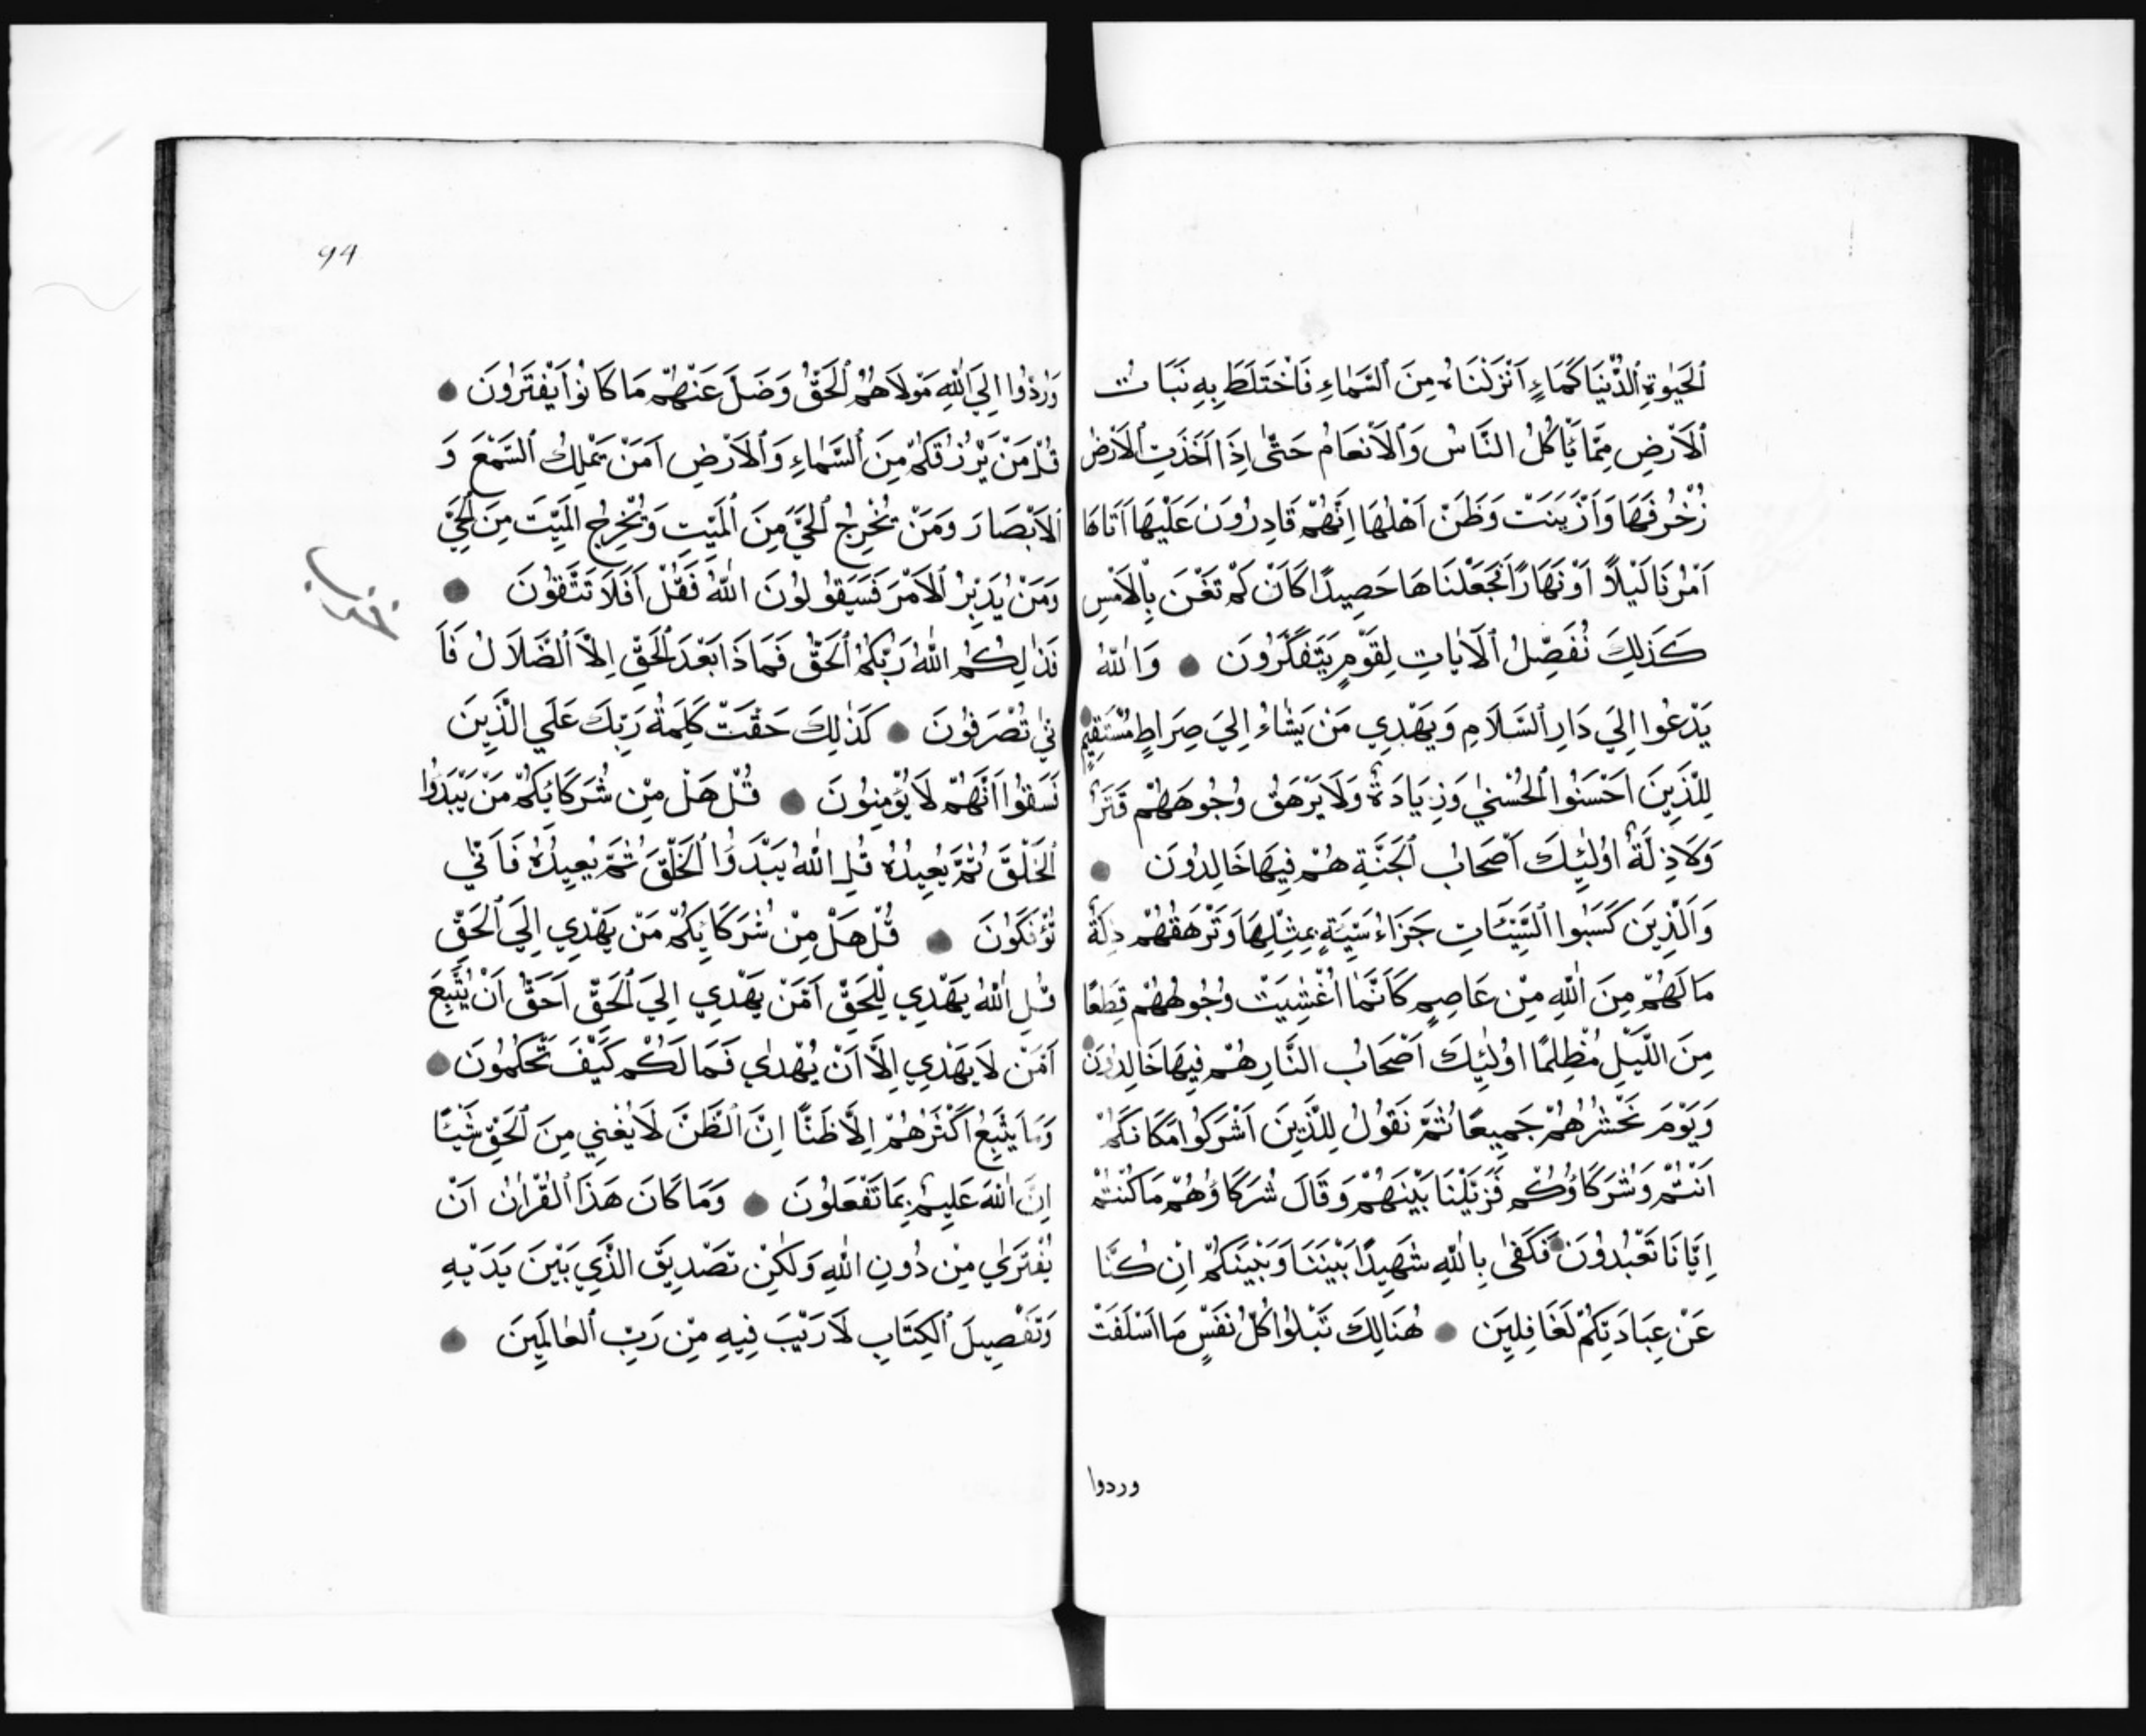 ٱلْحَيٰوةِ ٱلدُّنْيَا كَمَاءٍ اَنْزَلْنَاهُ مِنَ ٱلسَّمَاءِ فَاخْتَلَطَ بِهِ نَبَاتُ
ٱلْاَرْضِ مِمَّا يَاْكُلُ النَّاسُ وَٱلْاَنْعَامُ حَتّٰى اِذَا اَخَذَتِ ٱلْاَرْضُ
زُخْرُفَهَا وَٱزَّيَّنَتْ وَظَنَّ اَهْلُهَا اِنَّهُمْ قَادِرُونَ عَلَيْهَا اَتَاهَا
اَمْرُنَا لَيْلاً اَوْ نَهَارًا فَجَعَلْنَاهَا حَصِيدًا كَاَنْ لَمْ تَغْنَ بِٱلْاَمْسِ
كَذٰلِكَ نُفَصِّلُ ٱلْاٰيَاتِ لِقَوْمٍ يَتَفَكَّرُونَ وَاللّٰهُ
يَدْعُوا اِلَي دَارِ ٱلسَّلَامِ وَيَهْدِي مَنْ يَشَاءُ اِلَيَ صِرَاطٍ مُسْتَقِيمٍ
لِلَّذِينَ اَحْسَنُوا ٱلْحُسْنٰي وَزِيَادَةٌ وَلَا يَرْهَقُ وُجُوهَهُمْ قَتَرٌ
وَلَا ذِلَّةٌ اُولٰئِكَ اَصْحَابُ ٱلْجَنَّةِ هُمْ فِيهَا خَالِدُونَ
وَٱلَّذِينَ كَسَبُوا ٱلسَّيِّئَاتِ جَزَاءُ سَيِّئَةٍ بِمِثْلِهَا وَتَرْهَقُهُمْ ذِلَّةٌ
مَا لَهُمْ مِنَ اللّٰهِ مِنْ عَاصِمٍ كَاَنَّمَا اُغْشِيَتْ وُجُوهُهُمْ قِطَعًا
مِنَ اللَّيْلِ مُظْلِمًا اُولٰئِكَ اَصْحَابُ النَّارِ هُمْ فِيهَا خَالِدُونَ
وَيَوْمَ نَحْشُرُهُمْ جَمِيعًا ثُمَّ نَقُولُ لِلَّذِينَ اَشْرَكُوا مَكَانَكُمْ
اَنْتُمْ وَشُرَكَاؤُكُمْ فَزَيَّلْنَا بَيْنَهُمْ وَقَالَ شُرَكَاؤُهُمْ مَا كُنْتُمْ
اِيَّانَا تَعْبُدُونَ فَكَفٰى بِاللّٰهِ شَهِيدًا بَيْنَنَا وَبَيْنَكُمْ اِنْ كُنَّا
عَنْ عِبَادَتِكُمْ لَغَافِلِينَ هُنَالِكَ تَبْلُوا كُلُّ نَفْسٍ مَا اَسْلَفَتْ
وردوا
94
وَرُدُّوا اِلَيَ اللّٰهِ مَوْلَاهُمُ ٱلْحَقُّ وَضَلَّ عَنْهُمْ مَا كَانُوا يَفْتَرُونَ
قُلْ مَنْ يَرْزُقُكُمْ مِنَ ٱلسَّمَاءِ وَٱلْاَرْضِ اَمَنْ يَمْلِكُ ٱلسَّمْعَ وَ
ٱلْاَبْصَارَ وَمَنْ يُخْرِجُ ٱلْحَيَّ مِنَ ٱلْمَيِّتِ وَيُخْرِجُ الْمَيِّتَ مِنَ ٱلْحَيِّ
وَمَنْ يُدَبِّرُ ٱلْاَمْرَ فَسَيَقُولُونَ اللّٰهُ فَقُلْ اَفَلَا تَتَّقُونَ
فَذٰلِكُمُ اللّٰهُ رَبُّكُمُ ٱلْحَقُّ فَمَاذَا بَعْدَ ٱلْحَقِّ اِلاَّ ٱلضَّلَالُ فَاَ
نّٰي تُصْرَفُونَ كَذٰلِكَ حَقَّتْ كَلِمَةُ رَبِّكَ عَلَي الَّذِينَ
فَسَقُوا اَنَّهُمْ لَا يُؤْمِنُونَ قُلْ هَلْ مِنْ شُرَكَائِكُمْ مَنْ يَبْدَؤُا
ٱلْخَلْقَ ثُمَّ يُعِيدُهُ قُلِ اللّٰهُ يَبْدَؤُا ٱلْخَلْقَ ثُمَّ يُعِيدُهُ فَاَنّٰي
تُؤْفَكُونَ قُلْ هَلْ مِنْ شُرَكَائِكُمْ مَنْ يَهْدِي اِلَيَ ٱلْحَقِّ
قُلِ اللّٰهُ يَهْدِي لِلْحَقِّ اَفَمَنْ يَهْدِي اِلَيَ ٱلْحَقِّ اَحَقُّ اَنْ يُتَّبَعَ
اَمَّنْ لَا يَهْدِي اِلَّا اَنْ يُهْدٰي فَمَا لَكُمْ كَيْفَ تَحْكُمُونَ
وَمَا يَتَّبِعُ اَكْثَرُهُمْ اِلَّا ظَنًّا اِنَّ ٱلظَّنَّ لَا يُغْنِي مِنَ ٱلْحَقِّ شَيْئًا
اِنَّ اللّٰهَ عَلِيمٌ بِمَا تَفْعَلُونَ وَمَا كَانَ هَذَا ٱلْقُرْاٰنُ اَنْ
يُفْتَرَي مِنْ دُونِ اللّٰهِ وَلٰكِنْ تَصْدِيقَ الَّذِي بَيْنَ يَدَيْهِ
وَتَفْصِيلَ ٱلْكِتَابِ لَا رَيْبَ فِيهِ مِنْ رَبِّ ٱلْعٰالَمِينَ